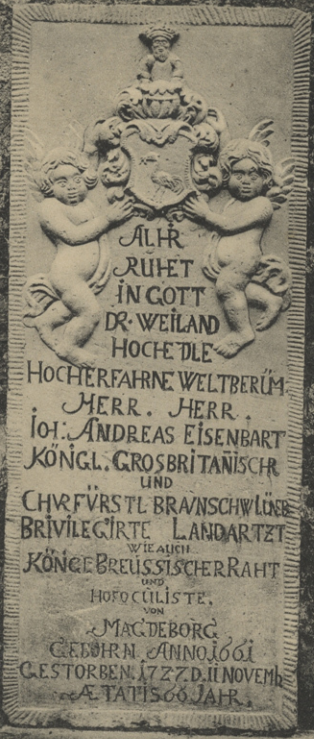 ALHR
RUHET
IN GOTT
DR. WEILAND
HOCHEDLE
HOCHERFAHRNE WELTBERÜM.
HERR. HERR.
IOH: ANDREAS EISENBART
KÖNIGL. GROSBRITAÑISCHR
UND
CHVRFÜRSTL BRAVNSCHW LÜNEB
BRIVILEGIRTE LANDARTZT
WIE AUCH
KÖNIGE BREUSSISCHER RAHT
UND
HOFOCULISTE.
VON
MAGDEBORG
GEBOHRN ANNO 1661
GESTORBEN. 1727. D. 11 NOVEMB
ÆTATIS 66 JAHR.